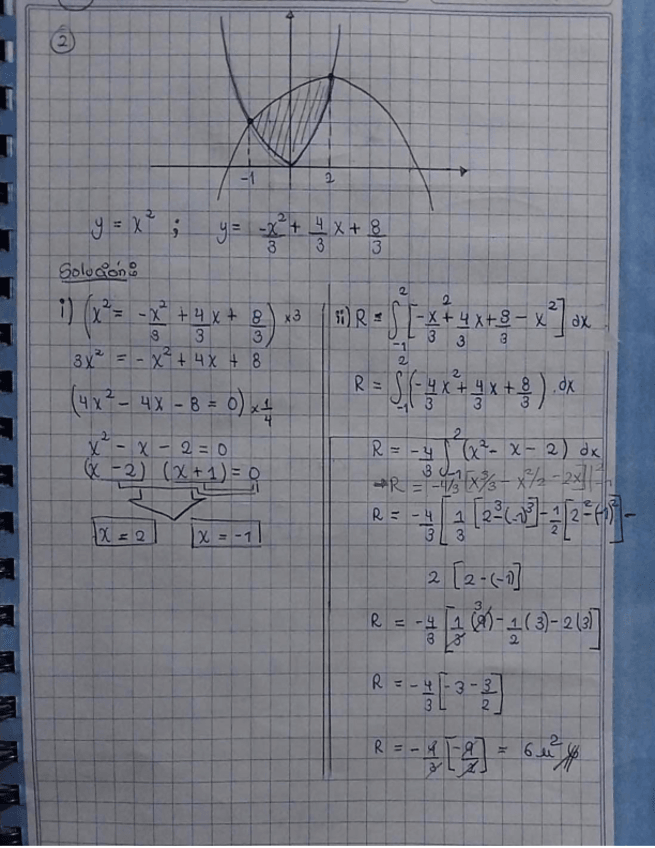 2
-1 2
y = x² ; y = -x²/3 + 4/3 x + 8/3
Solución:
i) (x² = -x²/3 + 4x/3 + 8/3) x3
3x² = -x² + 4x + 8
(4x² - 4x - 8 = 0) x 1/4
x² - x - 2 = 0
(x - 2) (x + 1) = 0
x = 2 x = -1
ii) R = ∫₋₁² [-x²/3 + 4x/3 + 8/3 - x²] dx
R = ∫₋₁² (-4/3 x² + 4/3 x + 8/3) . dx
R = -4/3 ∫₋₁² (x² - x - 2) dx
→ R = -4/3 [x³/3 - x²/2 - 2x] |₋₁²
R = -4/3 [1/3 [2³ - (-1)³] - 1/2 [2² - (-1)²] -
2 [2 - (-1)]
R = -4/3 [1/3 (9) 3 - 1/2 (3) - 2(3)]
R = -4/3 [-3 - 3/2]
R = -4/3 [-9/2] = 6 u²